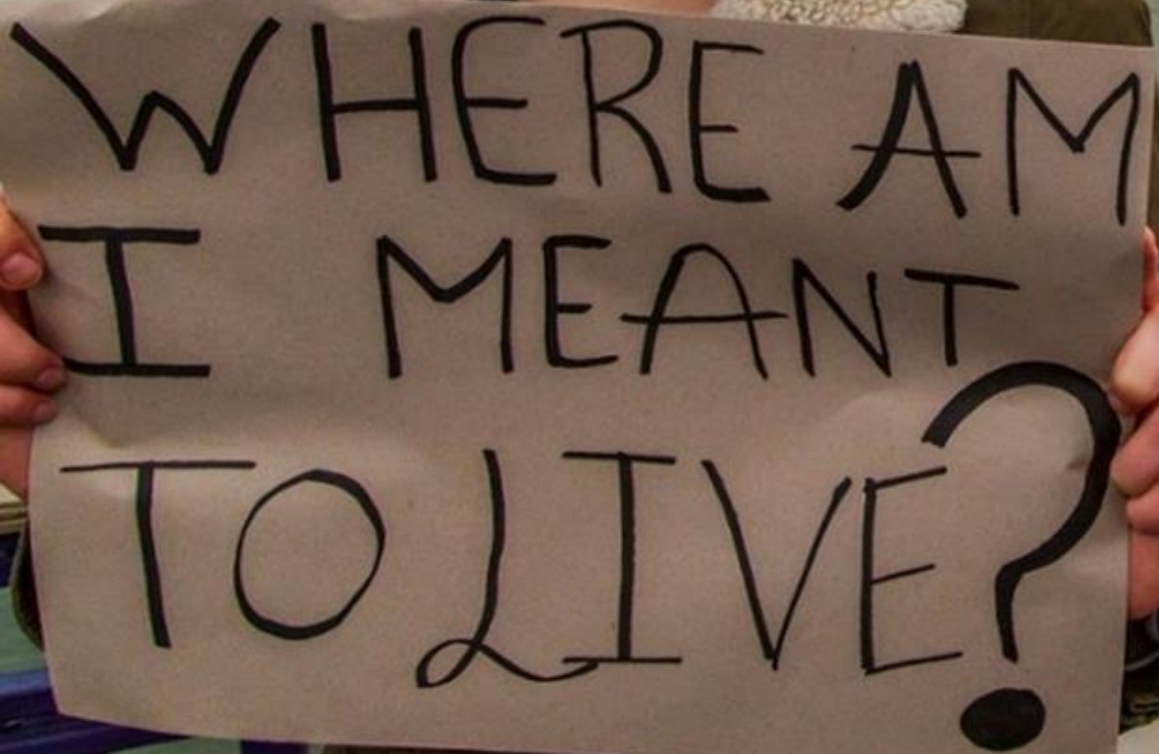 WHERE AM
I MEANT
TO LIVE?